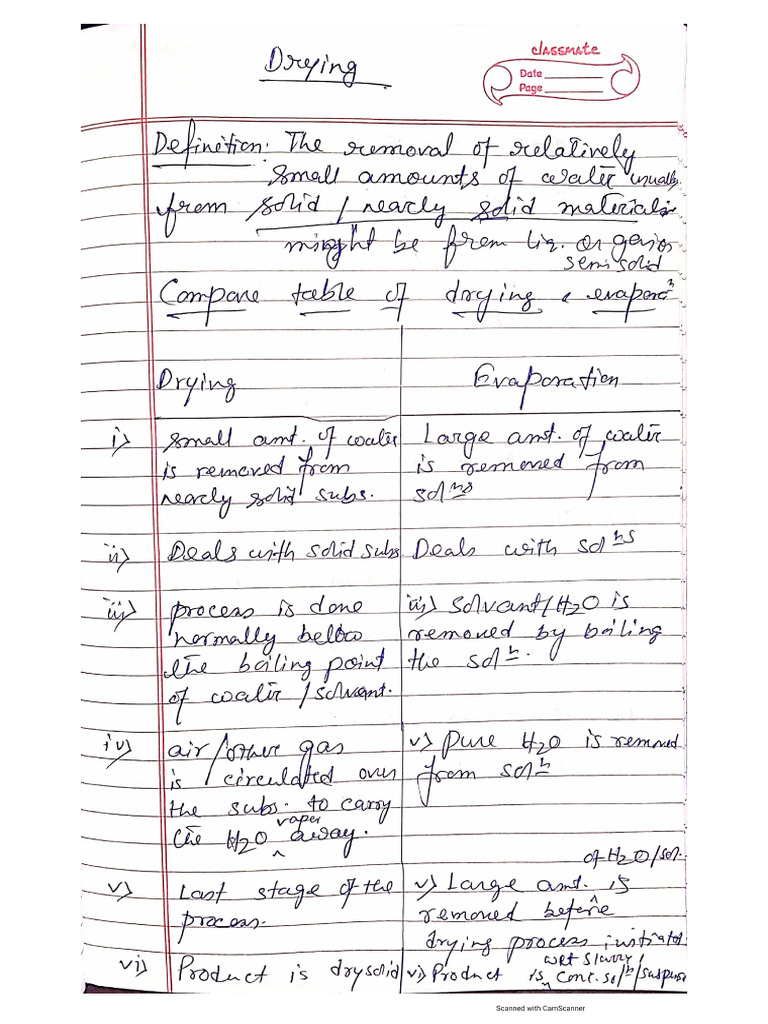 Drying
classmate
Date
Page
Definition: The removal of relatively
small amounts of water usually
from solid / nearly solid materials
might be from liq. or
semi solid
Compare table of drying & evaporaⁿ
Drying
Evaporation
i) small amt. of water
is removed from
nearly solid subs.
Large amt. of water
is removed from
solⁿˢ
ii) Deals with solid subs
Deals with solⁿˢ
iii) process is done
normally below
the boiling point
of water / solvent.
iii) solvant/H2O is
removed by boiling
the solⁿ.
iv) air/other gas
is circulated over
the subs. to carry
the H2O vaper away.
v) Pure H2O is removed
from solⁿ
v) Last stage of the
process.
v) Large amt. of H2O/sol. is
removed before
drying process
vi) Product is dry solid
v) Product is wet slurry / conc. solⁿ/suspens
Scanned with CamScanner